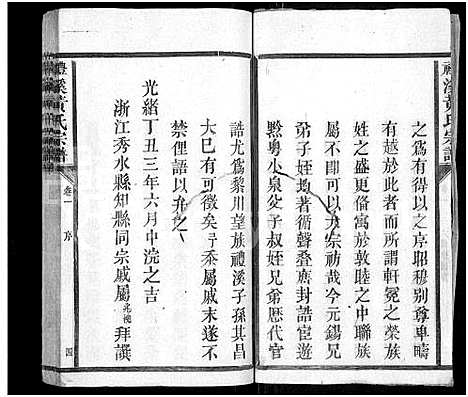 禮溪黃氏宗譜
之爲有得以之序昭穆別尊卑疇
有越於此者而所謂軒冕之榮族
姓之盛更備寓於敦睦之中聯族
屬不可以亢宗祊哉今元錫兄
弟子姪塤箎著循聲疊膺封誥宦遊
黔粵小泉父子叔姪兄弟歷代官
誥尤爲黎川望族禮溪子孫其昌
大巳有可徵矣予忝屬戚末遂不
禁俚語以弁之
光緒丁丑三年六月中浣之吉
浙江秀水縣知縣同宗戚屬兆槐拜譔
禮溪黃氏宗譜
卷一
序
四